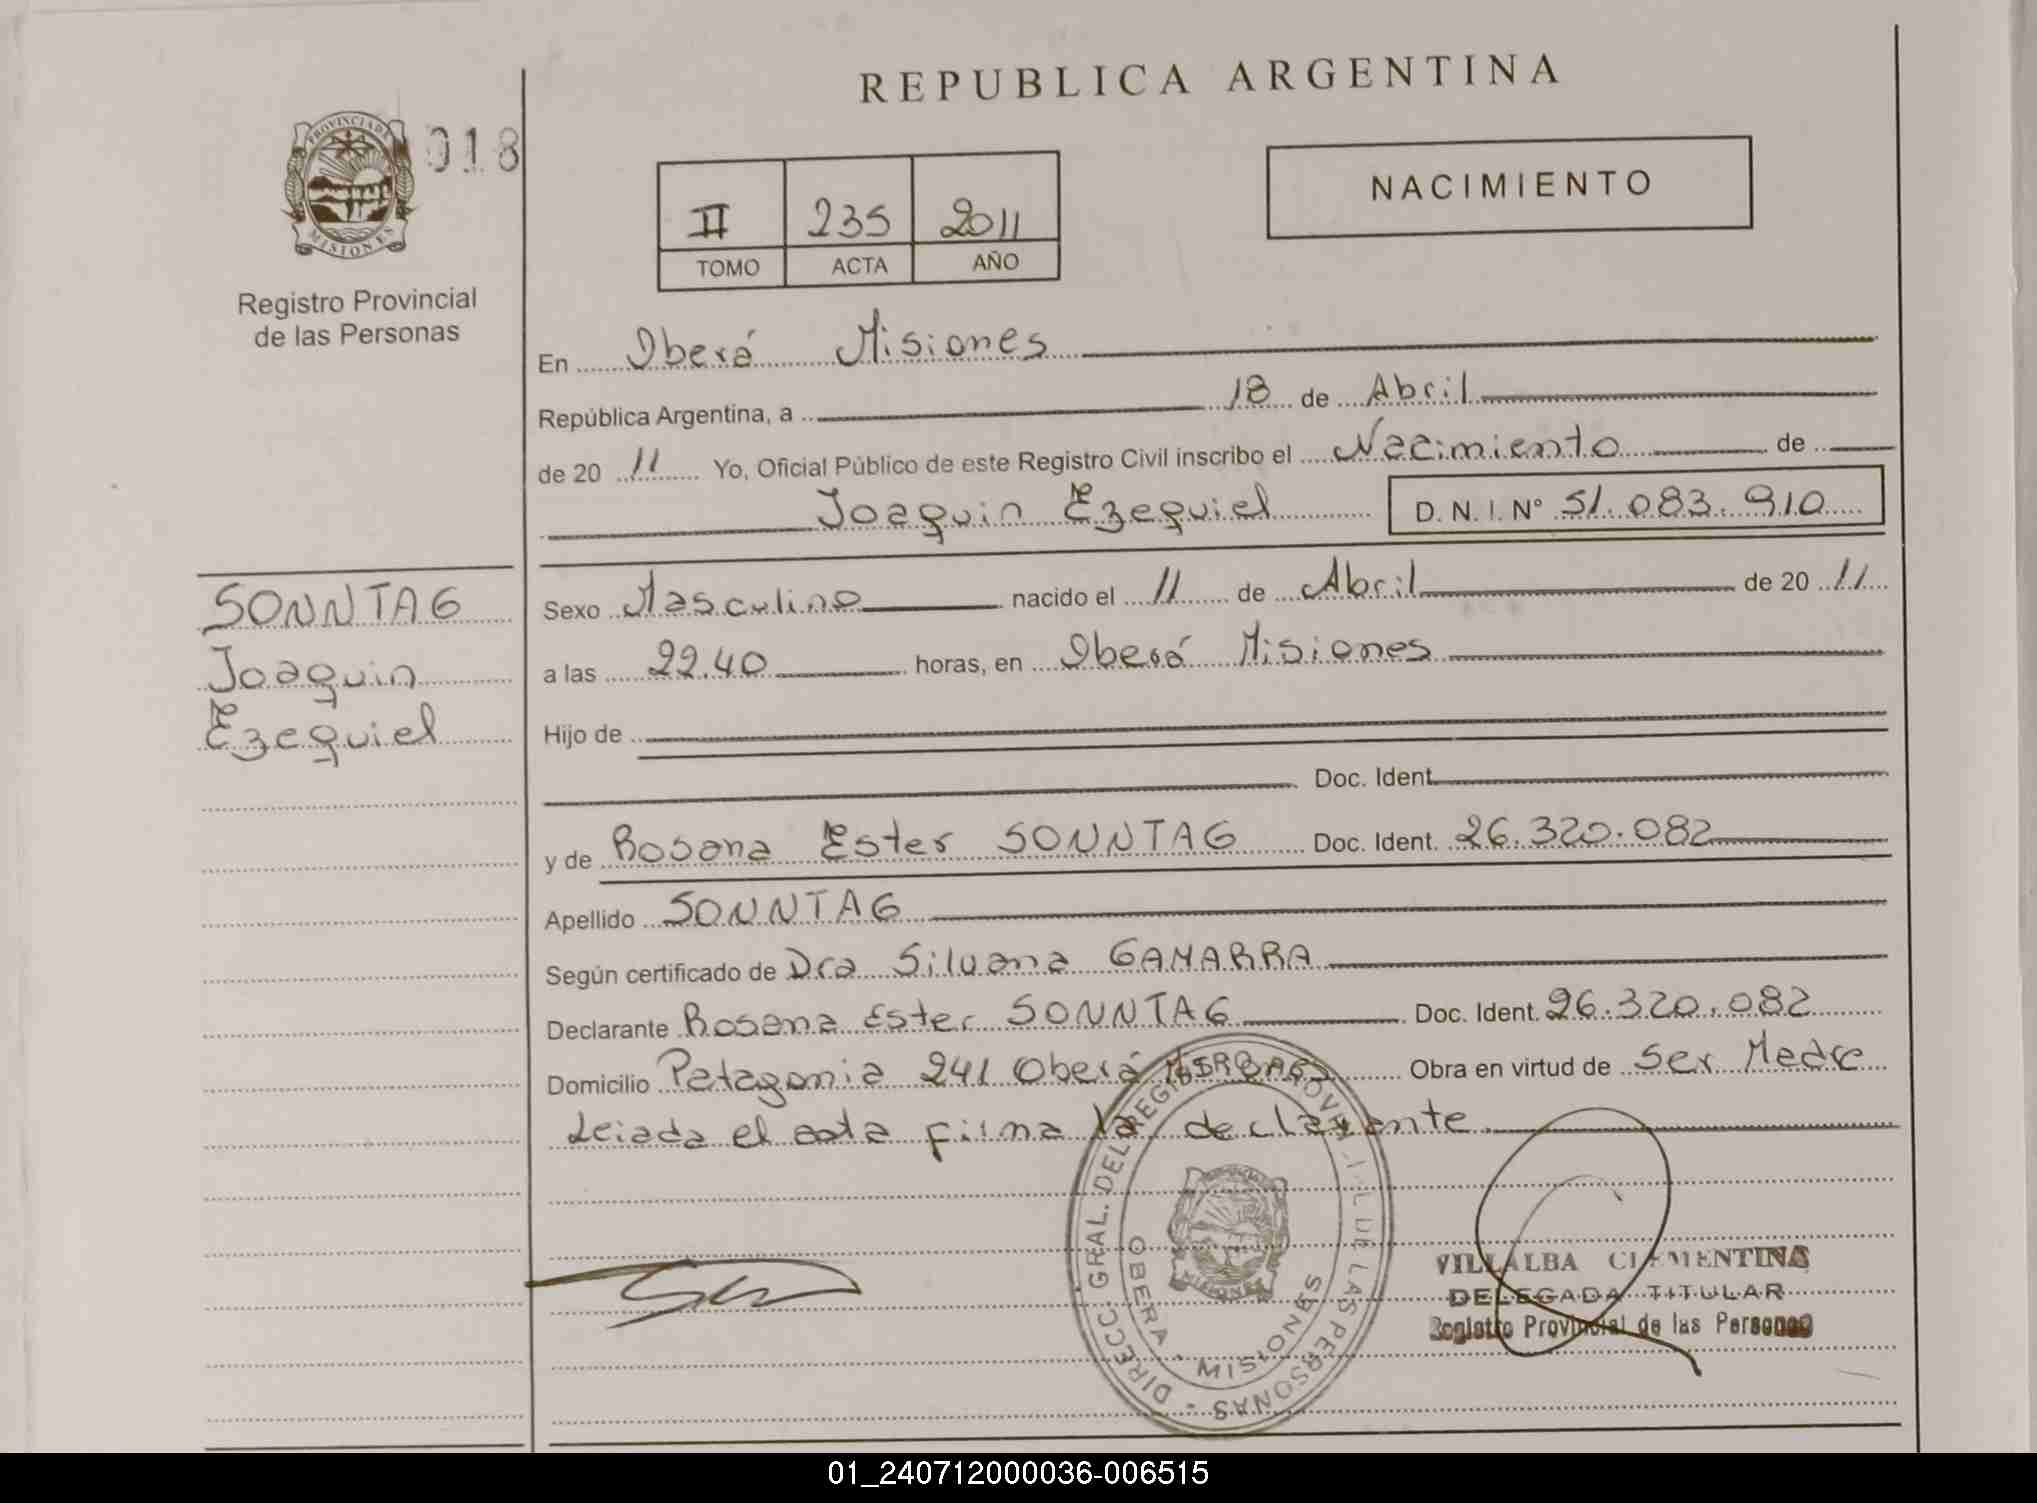 REPUBLICA ARGENTINA
PROVINCIA DE MISIONES
018
II 235 2011
TOMO ACTA AÑO
NACIMIENTO
Registro Provincial
de las Personas
En Oberá Misiones
República Argentina, a 18 de Abril
de 20 11 Yo, Oficial Público de este Registro Civil inscribo el Nacimiento de
Joaquin Ezequiel D. N. I. Nº 51.083.910
SONNTAG
Joaquin
Ezequiel
Sexo Masculino nacido el 11 de Abril de 20 11
a las 22.40 horas, en Oberá Misiones
Hijo de
Doc. Ident.
y de Rosana Ester SONNTAG Doc. Ident. 26.320.082
Apellido SONNTAG
Según certificado de Dra Silvana GAMARRA
Declarante Rosana Ester SONNTAG Doc. Ident. 26.320.082
Domicilio Patagonia 241 Oberá Obra en virtud de Ser Madre
Leiada el acta firma la declarante
DIRECC. GRAL. DEL REGISTRO PROVINCIAL DE LAS PERSONAS
OBERA MISIONES
VILLALBA CLEMENTINA
DELEGADA TITULAR
Registro Provincial de las Personas
01_240712000036-006515